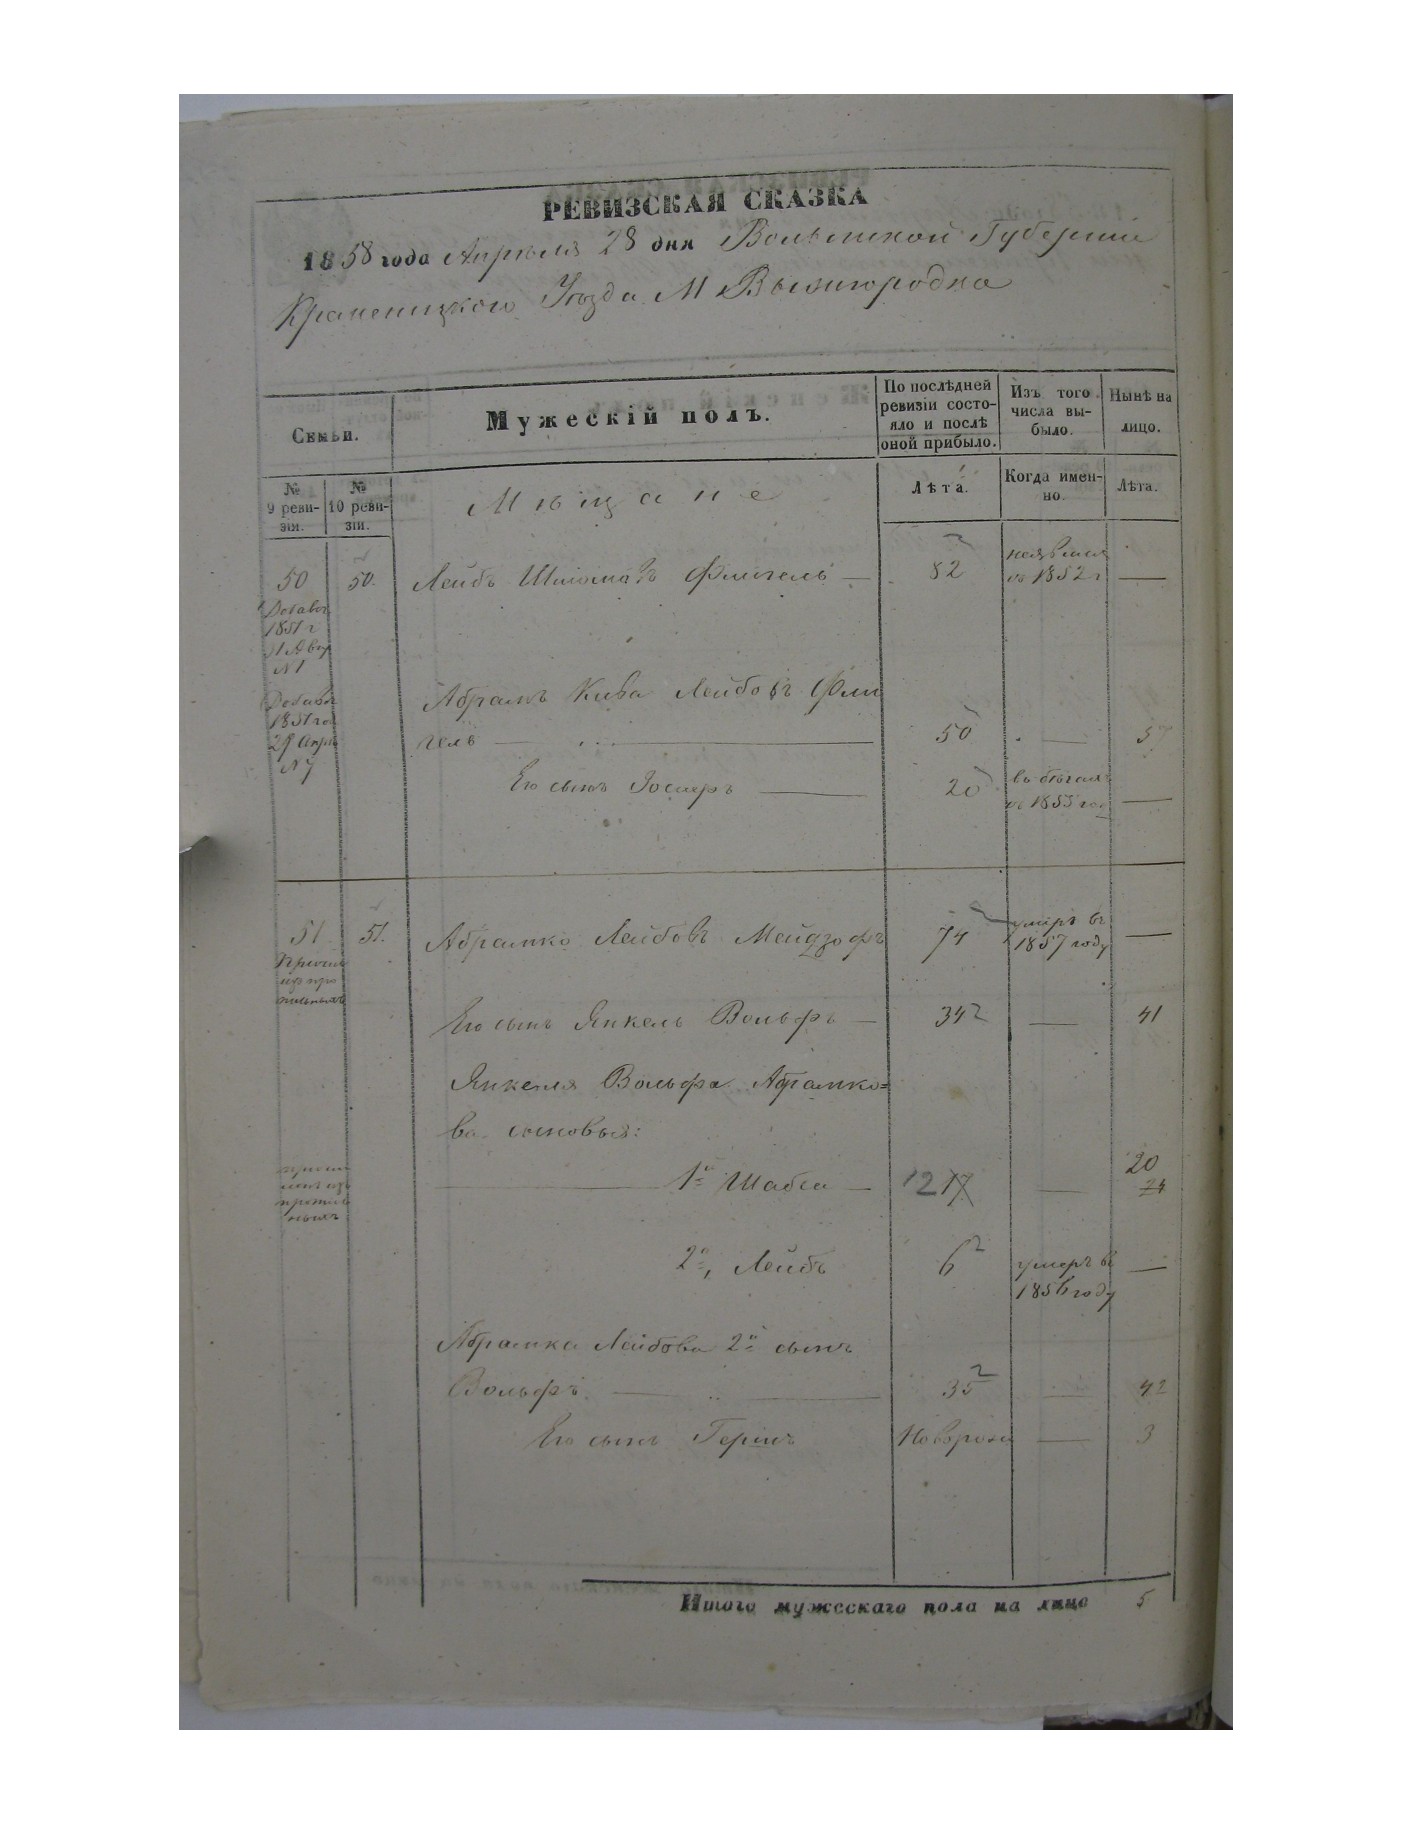 РЕВИЗСКАЯ СКАЗКА
1858 года Апреля 28 дня Волынской Губернии
Кременецкого Уезда М Вышгородка
Семьи.
Мужескій полъ.
По послѣдней ревизіи состояло и послѣ оной прибыло.
Изъ того числа выбыло.
Нынѣ на лицо.
№ 9 ревизіи.
№ 10 ревизіи.
Мѣщане
Лѣта.
Когда именно.
Лѣта.
50
50.
Лейбъ Шліомовъ Флигель —
82
въ 1852 г
—
Добавоч
1851 г
№ 1
Добавоч
1851 го
29 Апрѣ
№ 7
Абрамъ Кива Лейбовъ Фли
гель —
50
—
57
Его сынъ Іосиеръ —
20
въ 1855 год
—
51
51.
Абрамко Лейбовъ Мейдзофъ
74
умеръ въ
1857 году
—
Его сынъ Янкель Вольфъ —
34
—
41
Янкеля Вольфа Абрамко=
ва сыновья:
1й Шабса —
12 17
—
20
24
2й, Лейбъ
6
умеръ въ
1856 году
—
Абрамка Лейбова 2й сынъ
Вольфъ. —
35
—
42
Его сынъ Гершъ
Новорож
—
3
Итого мужескаго пола на лицо 5